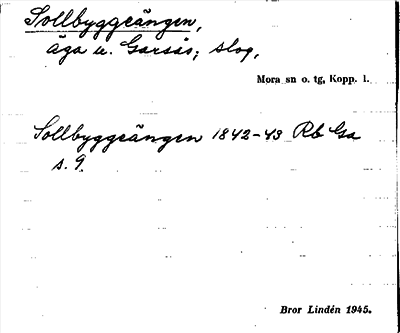 Sollbyggeängen,
äga u. Garsås; slog,
Mora sn o. tg, Kopp. l.
Sollbyggeängen 1842-43 Rb Ga
s. 9.
Bror Lindén 1945.